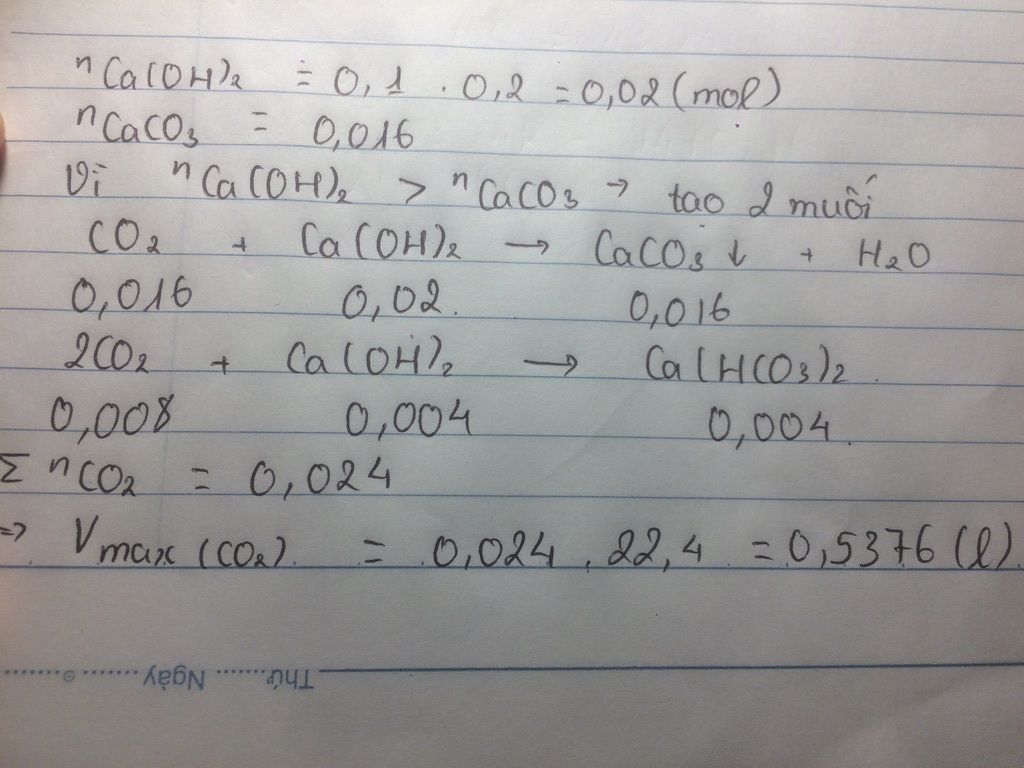 nCa(OH)₂ = 0,1 . 0,2 = 0,02 (mol)
nCaCO₃ = 0,016
Vì nCa(OH)₂ > nCaCO₃ → tao 2 muối
CO₂ + Ca(OH)₂ → CaCO₃ ↓ + H₂O
0,016 0,02. 0,016
2CO₂ + Ca(OH)₂ → Ca(HCO₃)₂.
0,008 0,004 0,004.
Σ nCO₂ = 0,024
=> Vmax (CO₂) = 0,024 . 22,4 = 0,5376 (l)
Thứ ........ Ngày ........